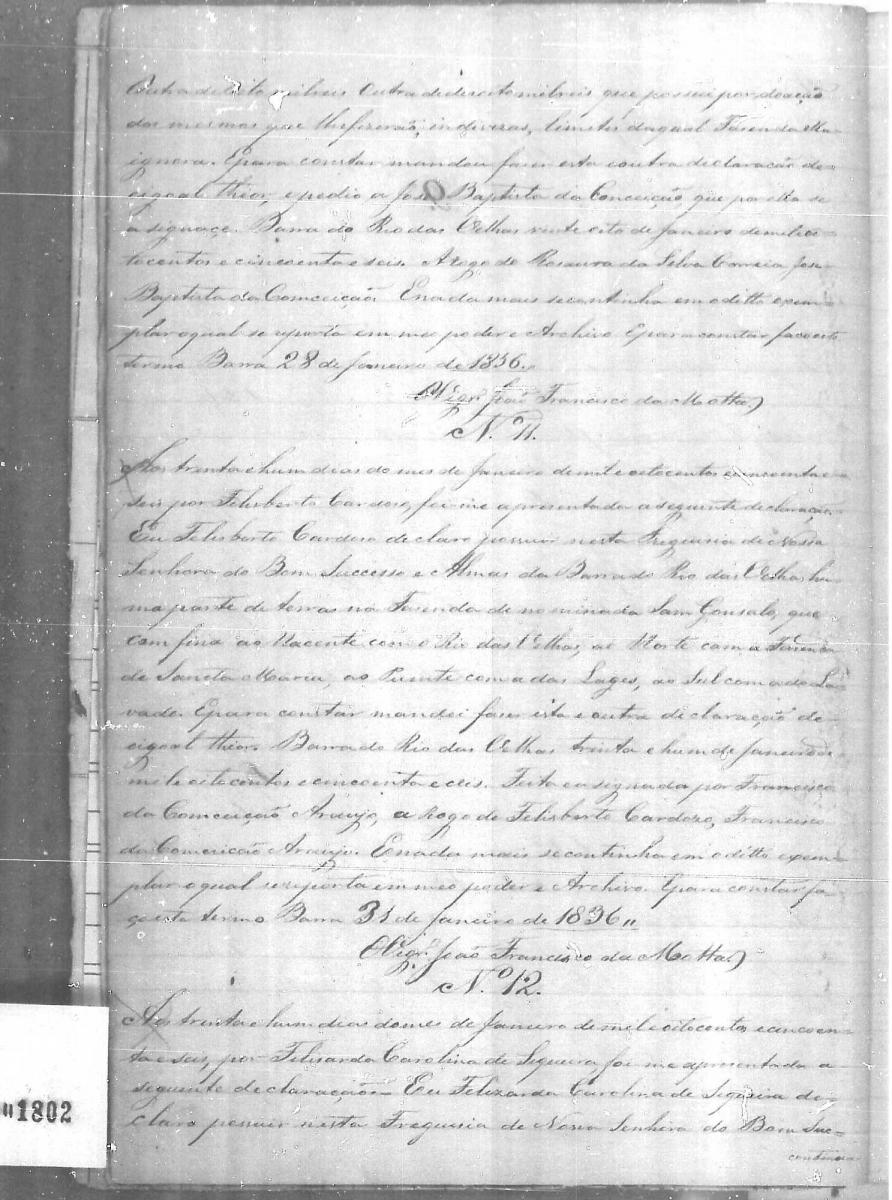 Outra de oito milreis Outra de desoito milreis que possui por doação
dos mesmos que lhe fizerão, indivizas, limites daqual Fasenda
ignora. Epara constar mandou faser esta eoutra declaração de
eigoal theor, epedio a José Baptista da Conceição que por ella se
asignaçe. Barra do Rio das Velhas vinte oito de Janeiro demil eoi-
tocentos e cincoenta e seis. A rogo de Rosaura da Silva Correia José
Baptista da Comceição. Enada mais secontinha em oditto exem-
plar oqual se reporta em meo poder e Archivo. Epara constar faço este
termo Barra 28 de Janeiro de 1856.
O Vigrº João Francisco da Motta.)
N.º 11.
Aos trinta e hum dias do mes de Janeiro demil e oitocentos ecincoenta e
seis por Felisberto Cardoso, foi-me apresentada aseguente declaração.
Eu Felisberto Cardoso declaro possuir nesta Freguesia de Nossa
Senhora do Bom Successo e Almas da Barra do Rio das Velhas hu-
ma parte de terras na Fasenda denominada Sam Gonsalo, que
comfina ao Nacente com o Rio das Velhas, ao Norte com a Fasenda
de Sancta Maria, ao Puente com a das Lages, ao Sul com a do La-
vado. Epara constar mandei faser esta e outra declaração de
eigoal theor. Barra do Rio das Velhas trinta e hum de Janeiro de
mil e oitocentos e cincoenta e ceis. Feita e asignada por Francisco
da Comceição Araujo, a Rogo de Felisberto Cardozo, Francisco
da Comceição Araujo. Enada mais secontinha em oditto exem-
plar oqual sereporta em meo poder e Archivo. Epara constar fa-
ço este termo Barra 31 de Janeiro de 1856
O Vigrº João Francisco da Motta.)
N.º 12.
Aos trinta e hum dias do mes de Janeiro de mil e oitocentos ecincoen-
ta e seis, por Felisarda Carolina de Siqueira, foi-me apresentada a
seguente declaração Eu Felizarda Carolina de Siqueira de-
claro possuir nesta Freguesia de Nossa Senhora do Bom Suc-
continua
1802